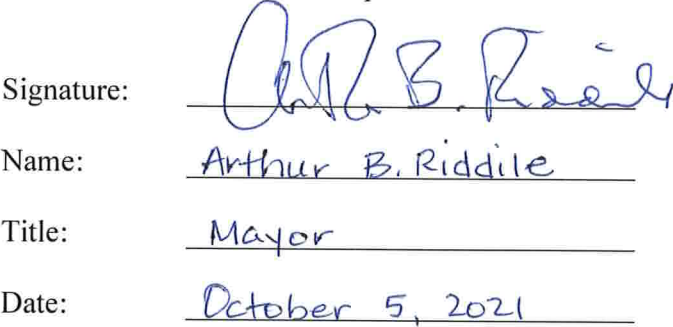 Signature: Arthur B. Riddile
Name: Arthur B. Riddile
Title: Mayor
Date: October 5, 2021